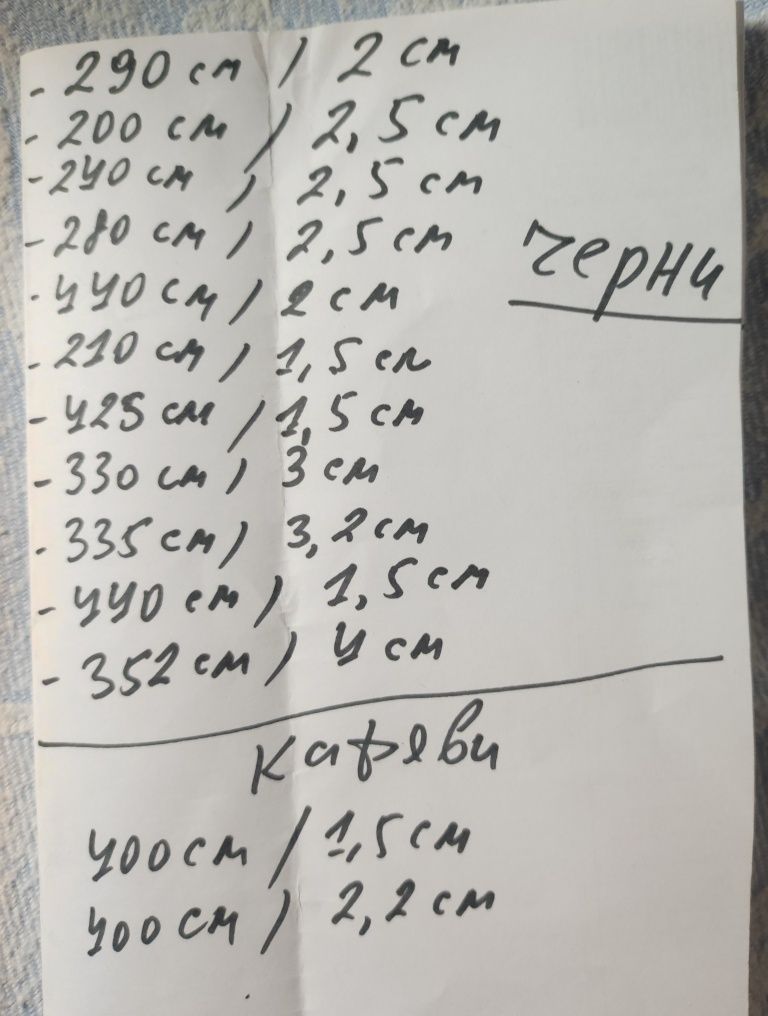 - 290 см / 2 см
- 200 см / 2,5 см
- 240 см / 2,5 см
- 280 см / 2,5 см
черни
- 440 см / 2 см
- 210 см / 1,5 см
- 425 см / 1,5 см
- 330 см / 3 см
- 335 см / 3,2 см
- 440 см / 1,5 см
- 352 см / 4 см
кафяви
400 см / 1,5 см
400 см / 2,2 см